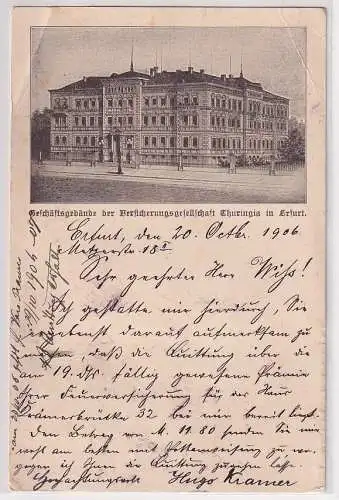 Geschäftsgebäude der Versicherungsgesellschaft Thuringia in Erfurt.
Erfurt, den 20. Octbr. 1906
Metzerstr. 18 II
Sehr geehrter Herr Wiss!
Ich gestatte mir hierdurch, Sie
ergebenst darauf aufmerksam zu
machen, daß die Quittung über die
am 19. ds. fällig gewesene Prämie
Ihrer Feuerversicherung für das Haus
Krämerbrücke 32 bei mir bereit liegt.
Den Betrag von M. 11.80 senden Sie mir
wohl am besten mit Postanweisung zu, wo-
gegen ich Ihnen die Quittung zugehen lasse.
Hochachtungsvoll
Hugo Kramer